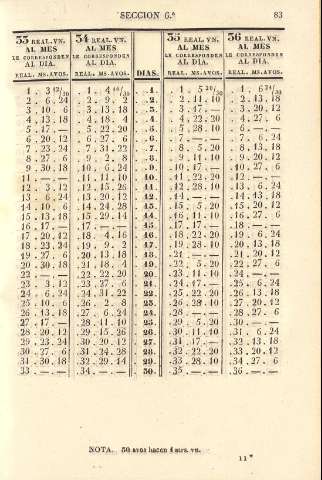 SECCION 6.ª 83
33 REAL. VN. AL MES LE CORRESPONDEN AL DIA. 34 REAL. VN. AL MES LE CORRESPONDEN AL DIA. 35 REAL. VN. AL MES LE CORRESPONDEN AL DIA. 36 REAL. VN. AL MES LE CORRESPONDEN AL DIA.
REAL. MS. AVOS. REAL. MS. AVOS. DIAS. REAL. MS. AVOS. REAL. MS. AVOS.
1. 3 12/30 1. 4 16/30 1. 1. 5 20/30 1. 6 24/30
2. 6. 24 2. 9. 2 2. 2. 11. 10 2. 13. 18
3. 10. 6 3. 13. 18 3. 3. 17. — 3. 20. 12
4. 13. 18 4. 18. 4 4. 4. 22. 20 4. 27. 6
5. 17. — 5. 22. 20 5. 5. 28. 10 6. — —
6. 20. 12 6. 27. 6 6. 7. — — 7. 6. 24
7. 23. 24 7. 31. 22 7. 8. 5. 20 8. 13. 18
8. 27. 6 9. 2. 8 8. 9. 11. 10 9. 20. 12
9. 30. 18 10. 6. 24 9. 10. 17. — 10. 27. 6
11. — — 11. 11. 10 10. 11. 22. 20 12. — —
12. 3. 12 12. 15. 26 11. 12. 28. 10 13. 6. 24
13. 6. 24 13. 20. 12 12. 14. — — 14. 13. 18
14. 10. 6 14. 24. 28 13. 15. 5. 20 15. 20. 12
15. 13. 18 15. 29. 14 14. 16. 11. 10 16. 27. 6
16. 17. — 17. — — 15. 17. 17. — 18. — —
17. 20. 12 18. 4. 16 16. 18. 22. 20 19. 6. 24
18. 23. 24 19. 9. 2 17. 19. 28. 10 20. 13. 18
19. 27. 6 20. 13. 18 18. 21. — — 21. 20. 12
20. 30. 18 21. 18. 4 19. 22. 5. 20 22. 27. 6
22. — — 22. 22. 20 20. 23. 11. 10 24. — —
23. 3. 12 23. 27. 6 21. 24. 17. — 25. 6. 24
24. 6. 24 24. 31. 22 22. 25. 22. 20 26. 13. 18
25. 10. 6 26. 2. 8 23. 26. 28. 10 27. 20. 12
26. 13. 18 27. 6. 24 24. 28. — — 28. 27. 6
27. 17. — 28. 11. 10 25. 29. 5. 20 30. — —
28. 20. 12 29. 15. 26 26. 30. 11. 10 31. 6. 24
29. 23. 24 30. 20. 12 27. 31. 17. — 32. 13. 18
30. 27. 6 31. 24. 28 28. 32. 22. 20 33. 20. 12
31. 30. 18 32. 29. 14 29. 33. 28. 10 34. 27. 6
33. — — 34. — — 30. 35. — — 36. — —
NOTA. 30 avos hacen 1 mrs. vn.
11*